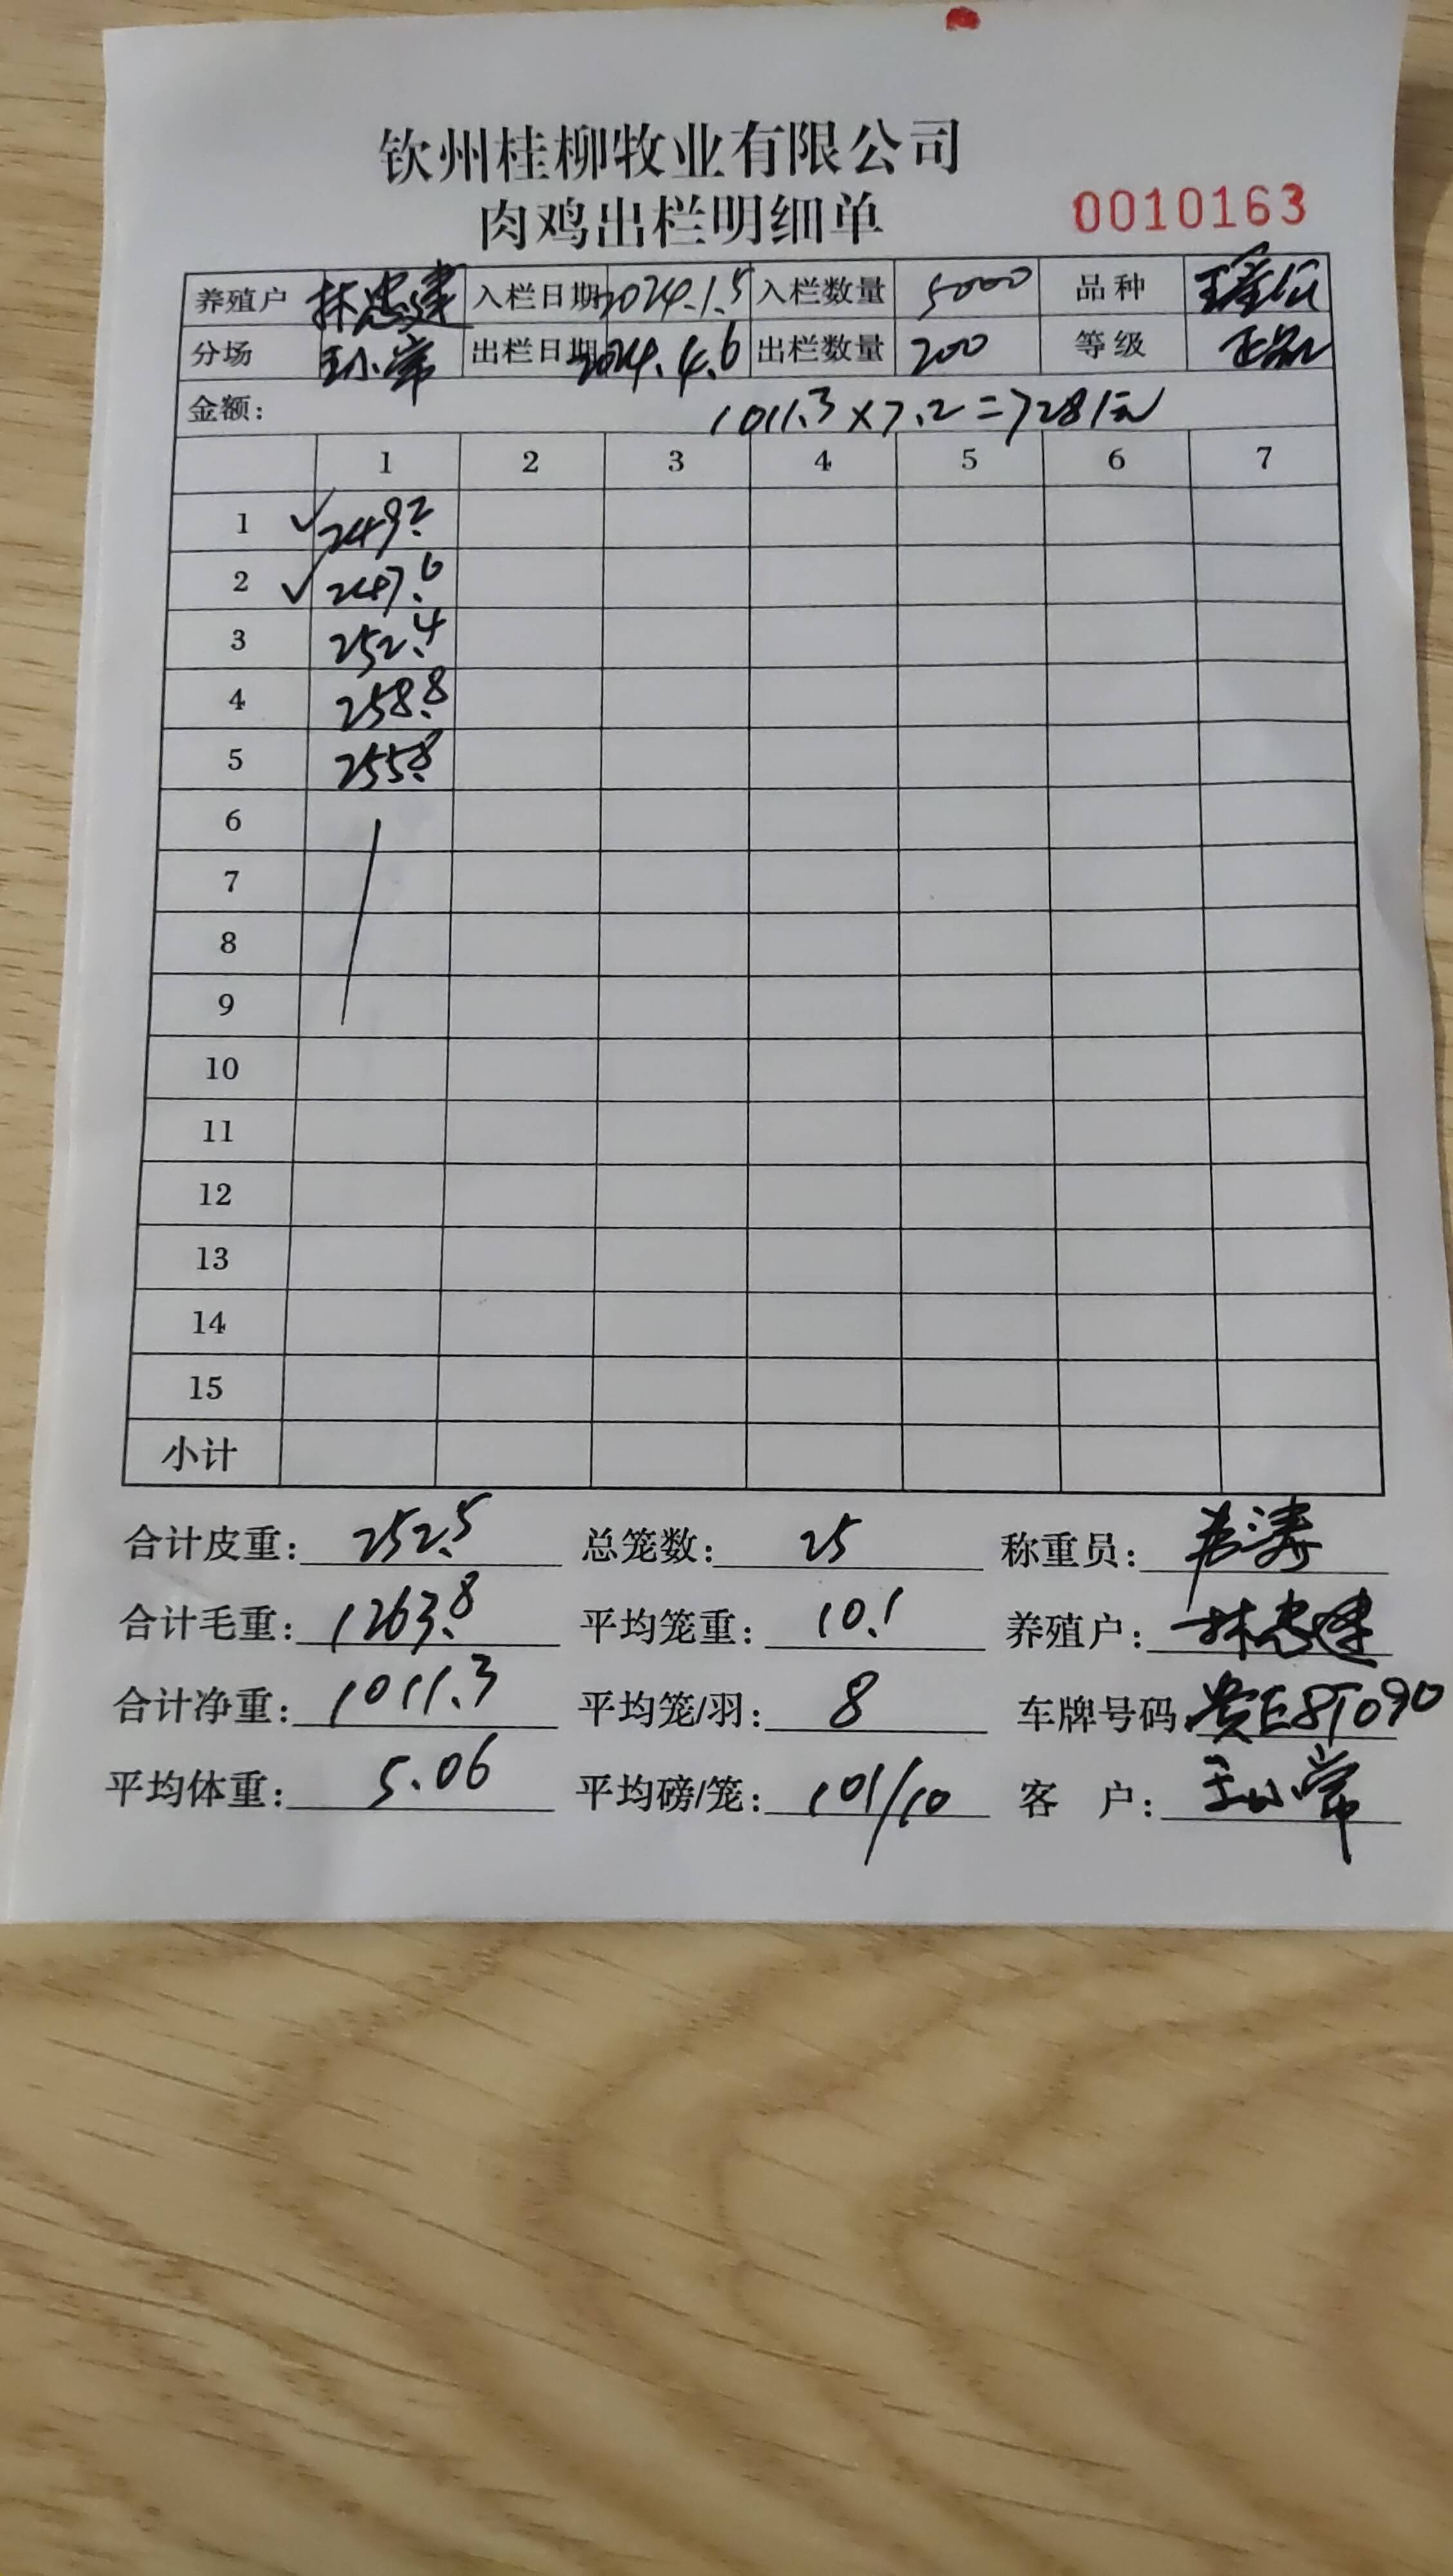 钦州桂柳牧业有限公司
肉鸡出栏明细单 0010163
养殖户 林忠建 入栏日期 2024.1.5 入栏数量 5000 品种
分场 王小常 出栏日期 2024.4.6 出栏数量 200 等级 正品
金额: 1011.3×7.2=7281元
1 2 3 4 5 6 7
1 249.2
2 247.6
3 252.4
4 258.8
5 255.8
6
7
8
9
10
11
12
13
14
15
小计
合计皮重: 252.5 总笼数: 25 称重员:
合计毛重: 1263.8 平均笼重: 10.1 养殖户: 林忠建
合计净重: 1011.3 平均笼/羽: 8 车牌号码: 贵E8T090
平均体重: 5.06 平均磅/笼: 101/10 客户: 王小常